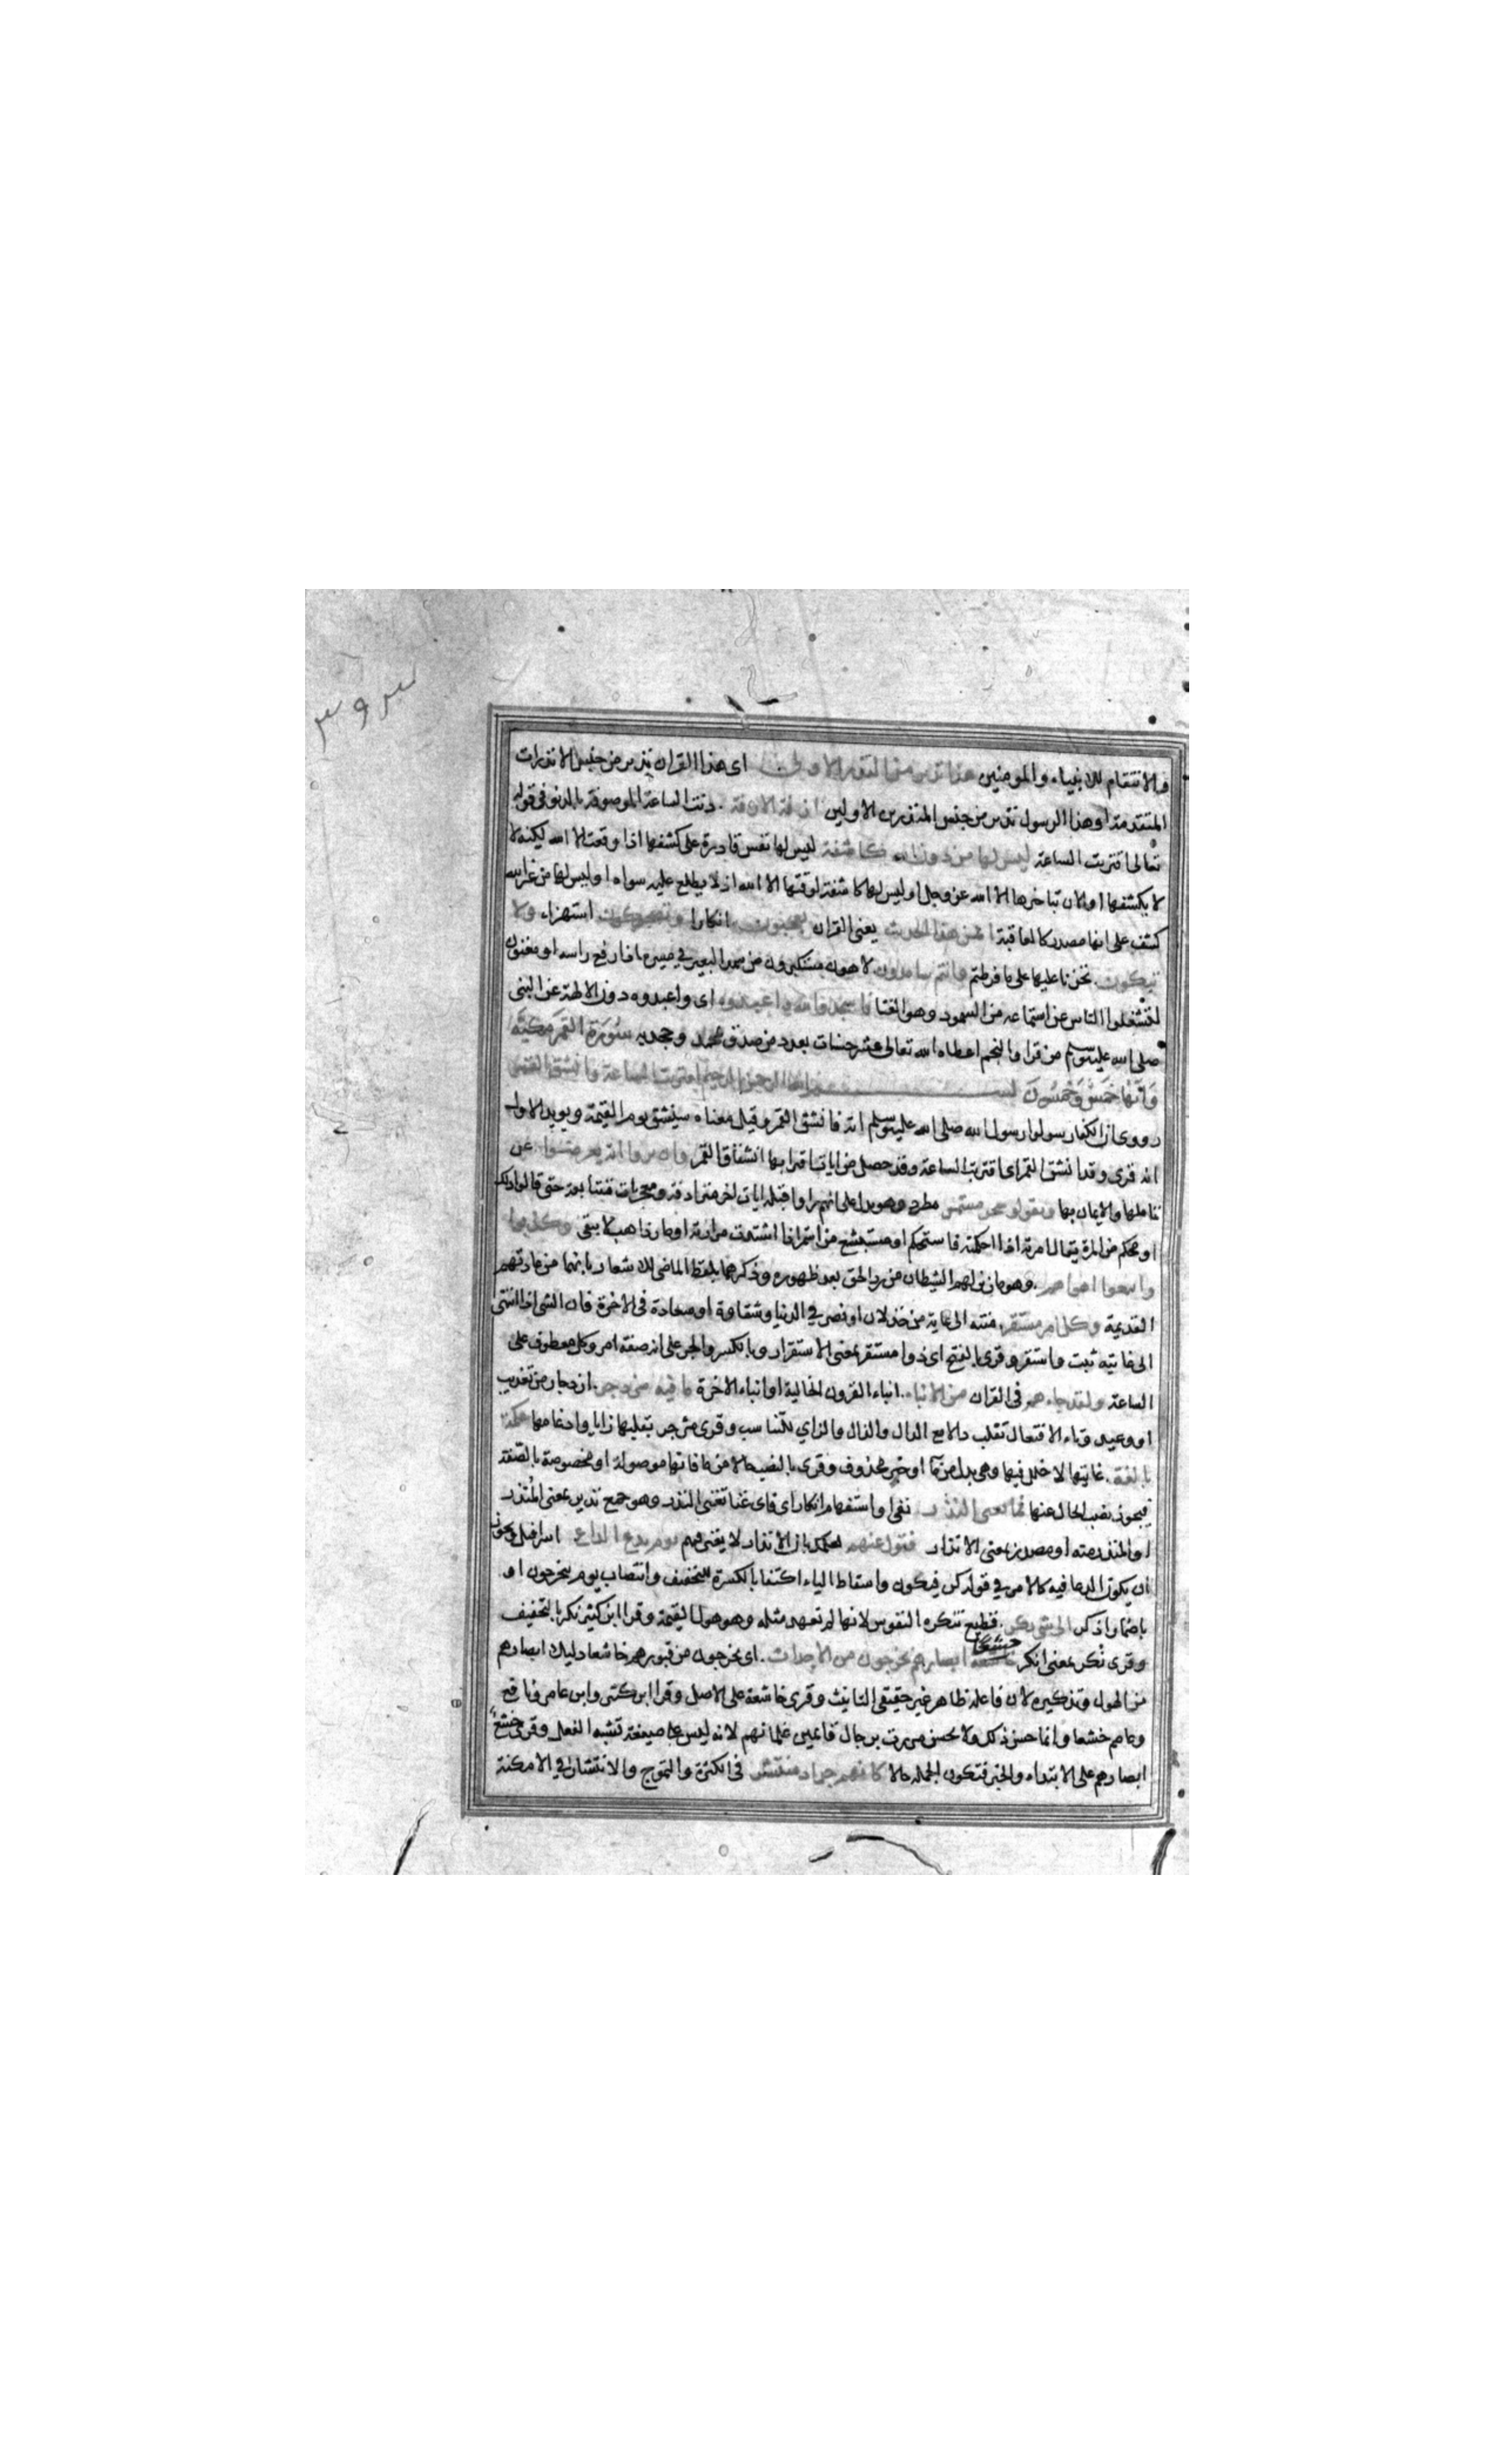 والانتقام للانبياء والمومنين هذا نذير من النذر الاولى اى هذا القران نذير من جنس الانذرات
المتقدمة اوهذا الرسول نذير من جنس المنذرين الاولين ازفة الازفة دنت الساعة الموصوفة بالدنو فى قوله
تعالى اقتربت الساعة ليس لها من دون الله كاشفة ليس لها نفس قادرة على كشفها اذا وقعت الا الله لكنه لا
لا يكشفها اوالان تباخرها الا الله عز وجل اوليس لها كاشفة لوقتها الا الله اذ لا يطلع عليه سواه اوليس لها من غير الله
كشف على انها مصدر كالعاقبة افمن هذا الحديث يعنى القران تعجبون انكارا وتضحكون استهزاء ولا
تبكون تحزنا عليها على ما فرطتم وانتم سامدون لاهون مستكبرون من سمد البعير فى مسيره اذا رفع راسه اومغنون
لتشغلوا الناس عن استماعه من السمود وهو الغنا فاسجدوا لله واعبدوه اى واعبدوه دون الالهة عن النبى
صلى الله عليه وسلم من قرا والنجم اعطاه الله تعالى عشر حسنات بعدد من صدق محمد وجحد به سورة القمر مكية
وَآيُهَا خَمْسٌ وَخَمْسُونَ بسم الله الرحمن الرحيم اقتربت الساعة وانشق القمر
روى ان الكفار سولوا رسول الله صلى الله عليه وسلم اية فانشق القمر وقيل معناه سينشق يوم القيمة ويويد الاول
انه قرى وقد انشق القمر اى اقتربت الساعة وقد حصل من ايات اقترابها انشقاق القمر وان يروا اية يعرضوا عن
تاملها والايمان بها ويقولوا سحر مستمر مطرد وهو يدل على انهم راوا قبله ايات اخر مترادفة ومعجزات متتابعة حتى قالوا ذلك
او محكم من المرة يقال امرته اذا احكمته فاستحكم او مستبشع من استمر اذا اشتدت مرارته او مار ذاهب لا يبقى وكذبوا
واتبعوا اهواهم وهو ما زين لهم الشيطان من رد الحق بعد ظهوره وذكرهما بلفظ الماضى للاشعار بانهما من عادتهم
القديمة وكل امر مستقر منته الى غاية من خذلان او نصر فى الدنيا وشقاوة او سعادة فى الاخرة فان الشى اذا انتهى
الى غايته ثبت واستقر وقرى بالفتح اى ذوا مستقر بمعنى الاستقرار وبالكسر والجر على انه صفة امر وكل معطوف على
الساعة ولقد جاءهم فى القران من الانباء انباء القرون الخالية او انباء الاخرة ما فيه مزدجر ازدجار من تعذيب
او وعيد وتاء الافتعال تقلب دالا مع الدال والذال والزاي للتناسب وقرى مزجر بقلبها زايا وادغامها حكمة
بالغة غايتها لا خلل فيها وهى بدل من ما او خبر لمحذوف وقرى بالنصب حالا من ما فانها موصولة او مخصوصة بالصفة
فيجوز نصب الحال عنها فما تغنى النذر نفى او استفهام انكار اى فاى غنا تغنى النذر وهو جمع نذير بمعنى المُنذر
او المنذر منه او مصدر بمعنى الانذار فتول عنهم لعلمك بان الانذار لا يغنى فيهم يوم يدع الداع اسرافيل ويجوز
ان يكون الدعا فيه كالامر فى قوله كن فيكون واسقاط الياء اكتفا بالكسرة للتخفيف وانتصاب يوم بيخرجون او
باضمار اذكر الى شى نكر فظيع تنكره النفوس لانها لم تعهد مثله وهو هول القيمة وقرا ابن كثير نكر بالتخفيف
وقرى نُكِر بمعنى انكر خاشعة خشعًا ابصارهم يخرجون من الاجداث اى يخرجون من قبورهم خاشعا ذليلا ابصارهم
من الهول وتذكيره لان فاعله ظاهر غير حقيقى التانيث وقرى خاشعة على الاصل وقرا ابن كثير وابن عامر ونافع
وعاصم خشعا وانما حسن ذلك ولا يحسن مررت برجال قاعين غلمانهم لانه ليس على صيغة تشبه الفعل وقرى خشع
ابصارهم على الابتداء والخبر فتكون الجملة حالا كانهم جراد منتشر فى الكثرة والتموج والانتشار فى الامكنة